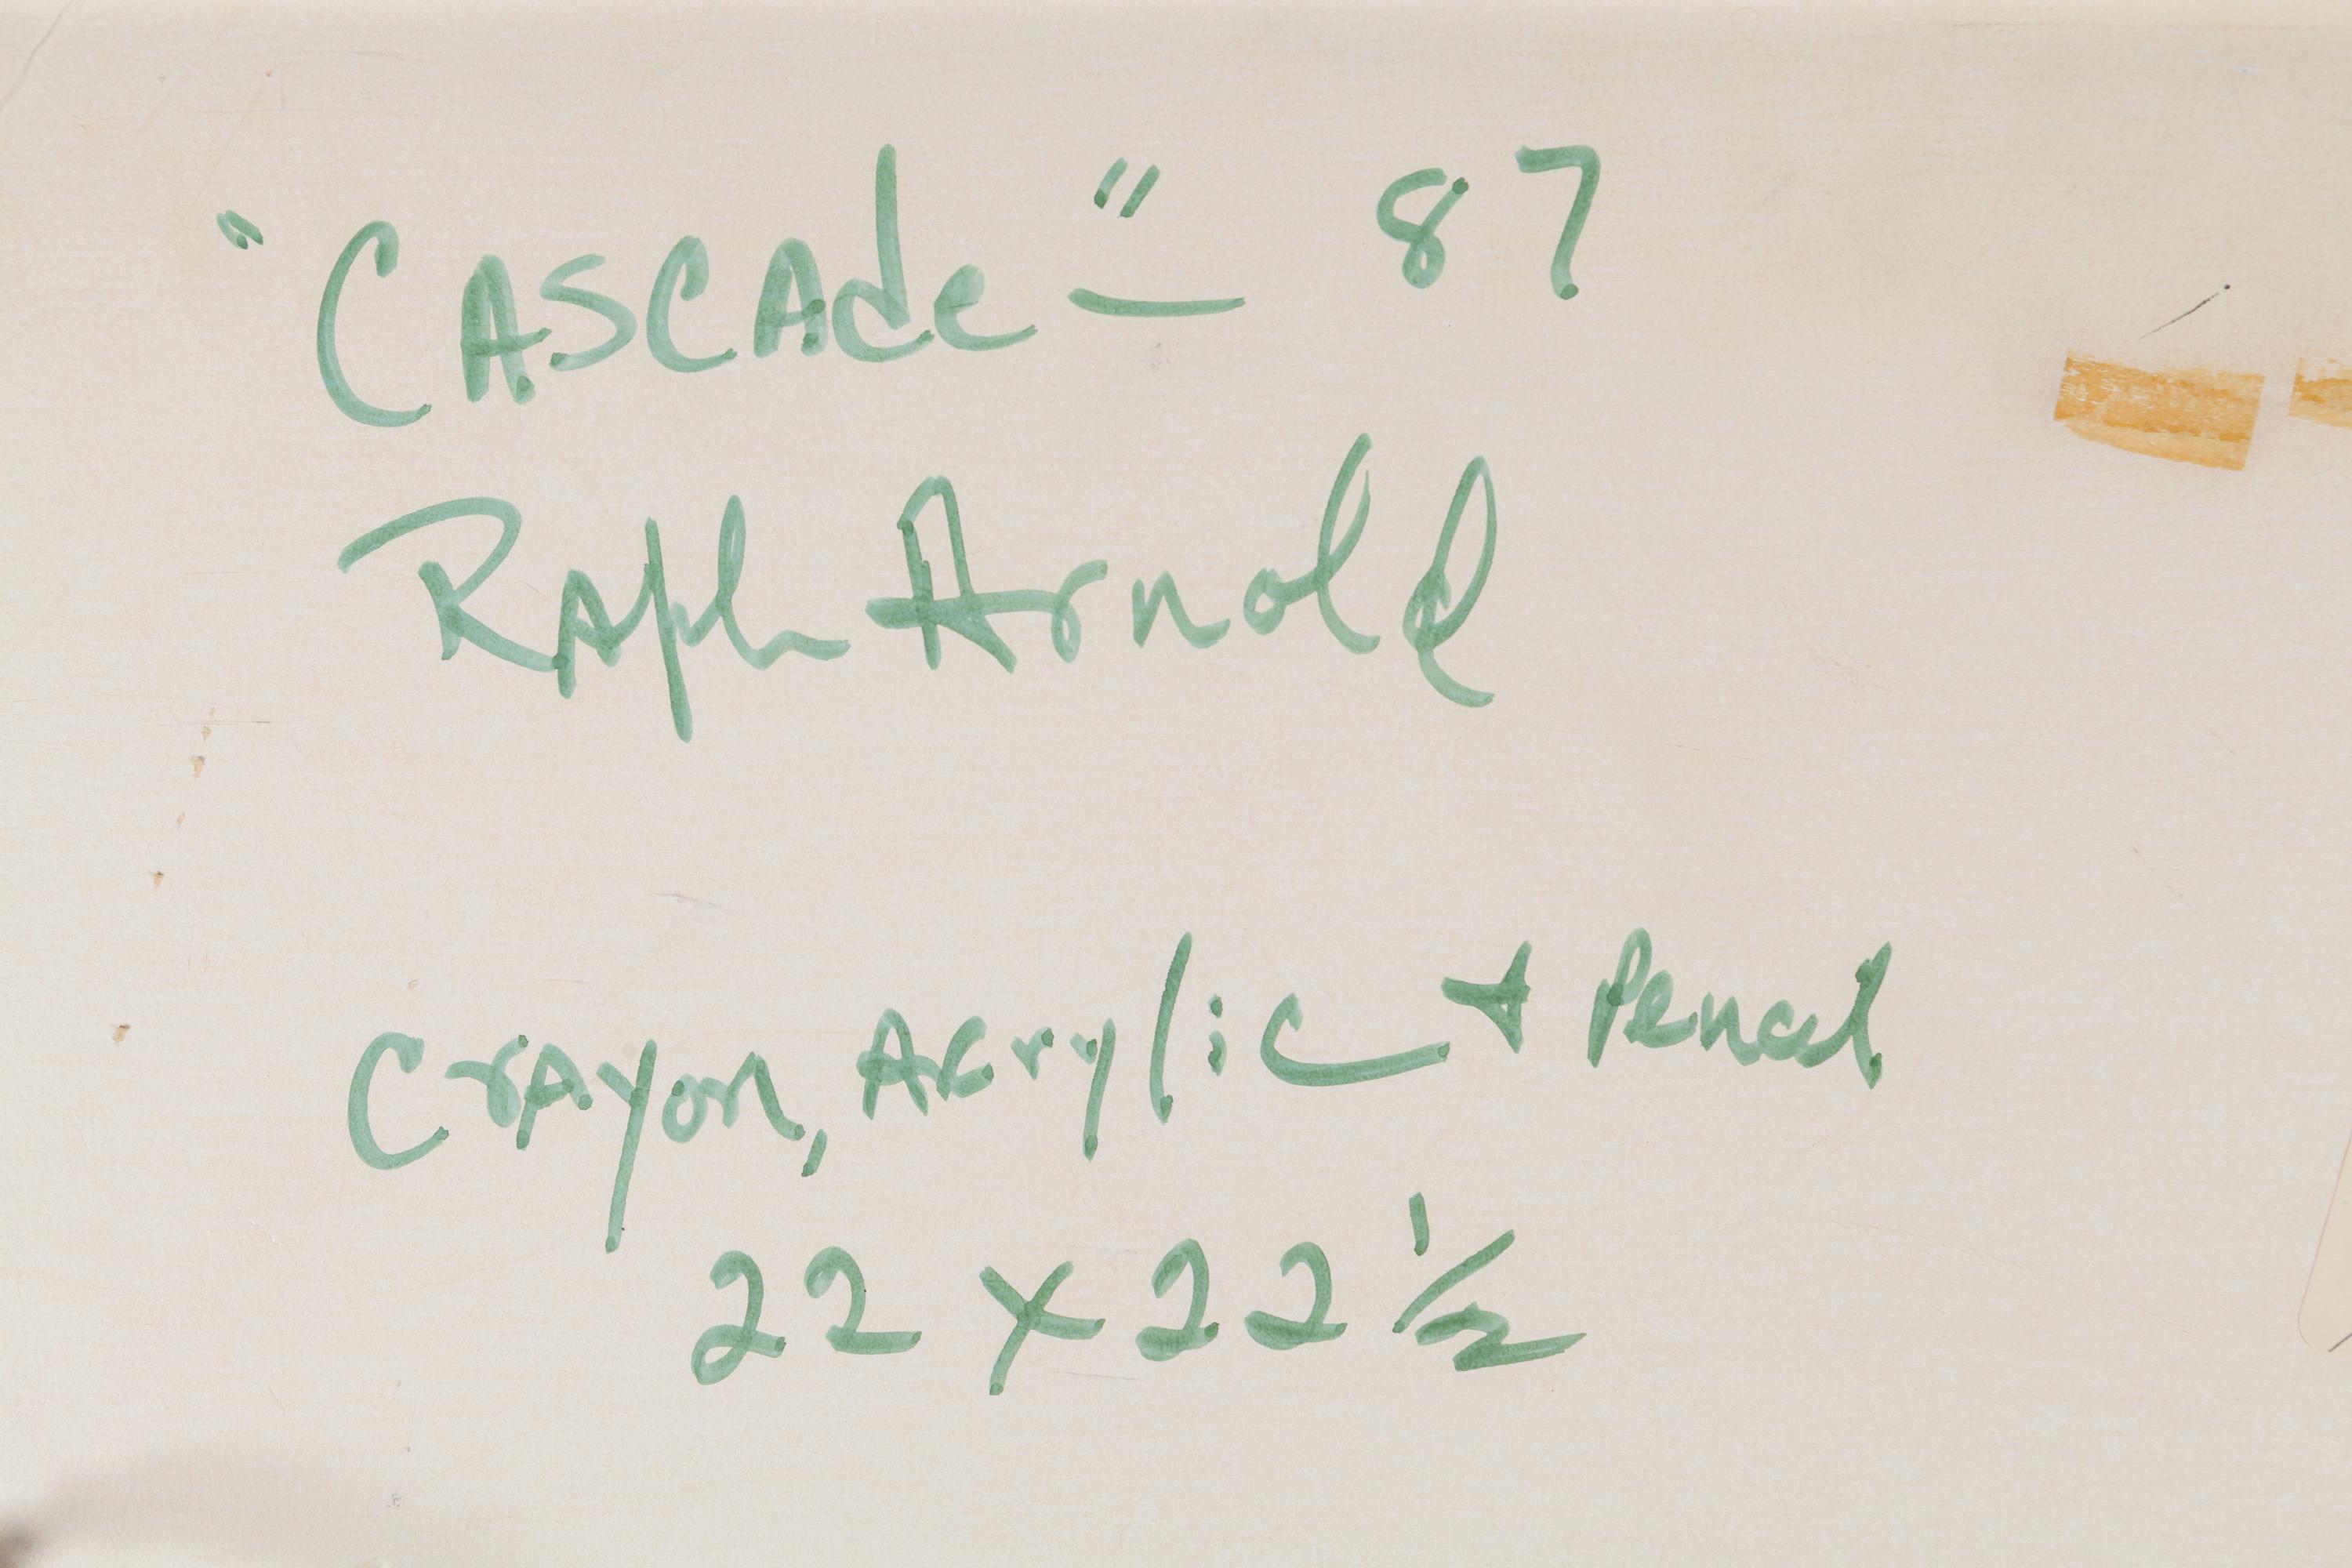 "CASCAde" — 87
RAlph Arnold
CrAyon, Acrylic + Pencil
22 x 22 1/2